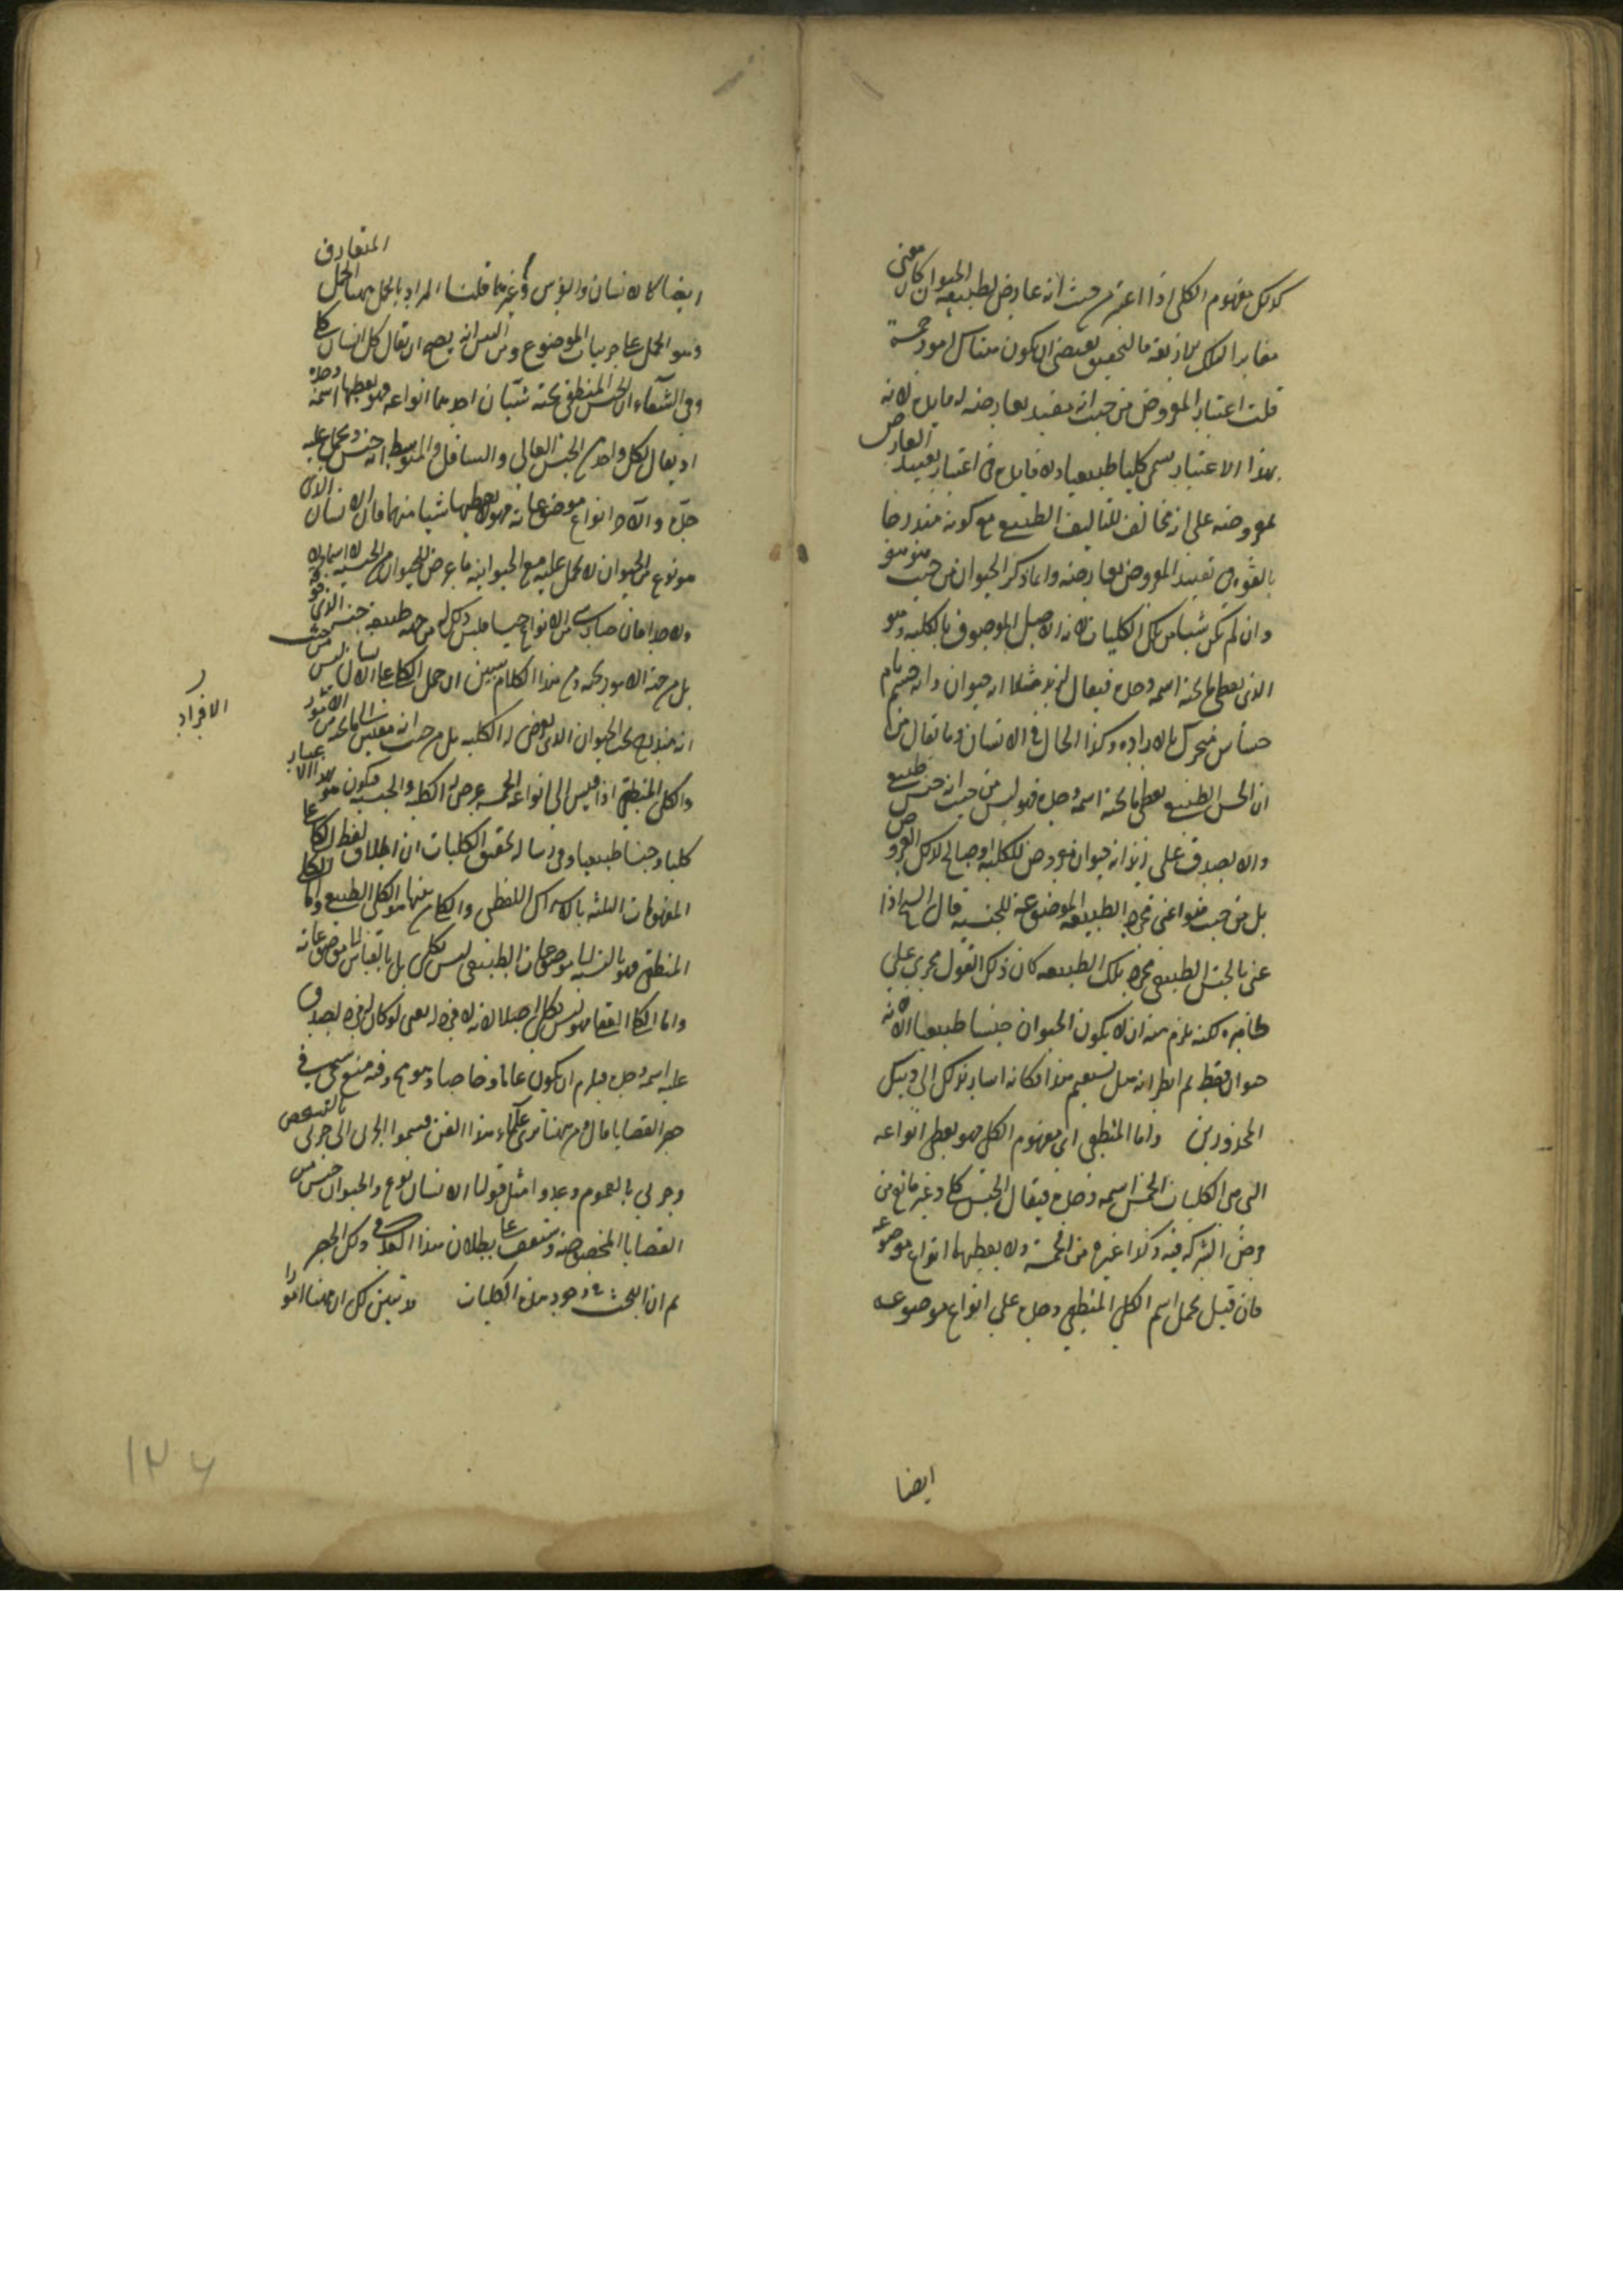 كذلك مفهوم الكلى اذا اعتبر من حيث انه عارض لطبيعة الحيوان كان معنى
مغايرا لتلك الاربعة فالتحقيق يقتضى ان يكون هناك امور خمسة
قلت اعتبار المعروض من حيث انه مقيد بعارضه له فايدة لانه
بهذا الاعتبار يسمى كليا طبيعيا ولا فايدة فى اعتبار تقييد العارض
بمعروضه على انه مخالف للتاليف الطبيعى مع كونه مندرجا
بالقوة فى تقييد المعروض بعارضه وانما ذكر الحيوان من حيث هو هو
وان لم يكن شيئا من تلك الكليات لانه الاصل الموصوف بالكلية وهو
الذى يعطى ما تحته اسمه وحده فيقال لزيد مثلا انه حيوان وانه جسم نام
حساس متحرك بالارادة وكذا الحال فى الانسان وما يقال من
ان الجنس الطبيعى يعطى ما تحته اسمه وحده فهو ليس من حيث انه جنس طبيعى
والا يصدق على زيد انه حيوان معروض للكلية او صالح لذلك العروض
بل من حيث هو اعنى مجرد الطبيعة الموضوعة للجنسية قال الشيخ اذا
عنى بالجنس الطبيعى مجرد تلك الطبيعة كان ذلك القول مجرى على
ظاهره لكنه يلزم منه ان لا يكون الحيوان جنسا طبيعيا الا انه
حيوان فقط ثم انظر انه هل يستقيم هذا فكانه اشار بذلك الى
المحذورين واما المنطقى اى مفهوم الكلى فهو يعطى انواعه
التى هى الكليات الخمس اسمه وحده فيقال الجنس كلى وغير مانع من
فرض الشركة فيه وكذا غيره من الخمسة ولا يعطيهما انواع موضوعه
فان قيل يحمل اسم الكلى المنطقى وحده على انواع موضوعه
ايضا
ايضا كالانسان والفرس وغيرهما قلنا المراد بالحمل ههنا الحمل المتعارف
وهو الحمل على جزئيات الموضوع وليس انه يصح ان يقال كل انسان كلى
وفى الشفاء ان الجنس المنطقى تحته شيئان احدهما انواعه فهو يعطيها اسمه وحده
اذ يقال لكل واحد من الجنس العالى والسافل والمتوسط انه جنس ويحمل عليه
حده والآخر انواع موضوعاته فهو لا يعطيها شيئا منهما فان الانسان الذى
هو نوع من الحيوان لا يحمل عليه مع الحيوانية ما يعرض للحيوان من الجنسية لا اسما ولا
ولا حدا فان صار شى من الانواع جنسا فليس ذلك له من جهة طبيعة جنس الذى فوقه
بل من جهة الامور تحته ومن هذا الكلام يتبين ان حمل الكلى على الانسان ليس من حيث
انه مندرج تحت الحيوان الذى يعرض له الكلية بل من حيث انه مقيس الى ما تحته من الامور
الافراد
والكلى المنطقى اذا قيس الى انواعه الخمسة عرض له الكلية والجنسية فيكون هو بهذا الاعتبار
كليا وجنسا طبيعيا وفى رسالة تحقيق الكليات ان اطلاق لفظ الكلى على
المفهومات الثلثة بالاشتراك اللفظى والكلى منها هو الكلى الطبيعى واما
المنطقى فهو بالنسبة الى موضوعات الطبيعى ليس بكلى بل بالقياس الى موضوعاته
واما الكلى العقلى فهو ليس بكلى اصلا لانه لا فرد له يعنى لو كان له فرد لصدق
عليه اسمه وحده فيلزم ان يكون عاما وخاصا وهو مح وفيه منع سيجى فى
حصر القضايا قال ومن ههنا ترى علماء هذا الفن قسموا الجزئى الى جزئى بالشخص
وجزئى بالعموم وعدوا مثل قولنا الانسان نوع والحيوان جنس من
القضايا المخصوصة وستقف على بطلان هذا الكلام فى ذلك الحصر
ثم ان البحث عن وجود هذه الكليات قد تبين لك ان ههنا امورا
١٢٦